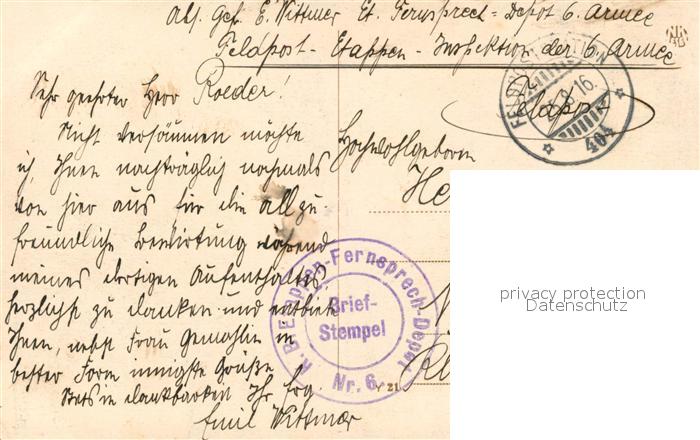 Abs. Gef. E. Wittmer Et. Fernsprech-Depot 6. Armee
Feldpost-Etappen-Inspektion der 6. Armee
Sehr geehrter Herr Roeder!
Nicht versäumen möchte
ich, Ihnen nachträglich nochmals
von hier aus für die allzu
freundliche Bewirtung während
meines dortigen Aufenthaltes
herzlichst zu danken und entbiete
Ihnen, nebst Frau Gemahlin in
bester Form innigste Grüße
Stets in dankbarkeit Ihr Erg.
Emil Wittmer
Feldpost
Hochwohlgeboren
He
8. 16.
404
K. B. Etappen-Fernsprech-Depot
Brief-
Stempel
Nr. 6
21
privacy protection
Datenschutz